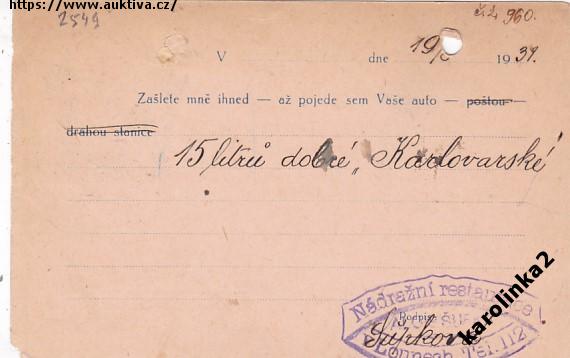 https://www.auktiva.cz/
2549
č.ž. 960.
V dne 19/ 1939.
Zašlete mně ihned — až pojede sem Vaše auto — poštou —
drahou stanice
15 litrů dobré „Karlovarské"
Nádražní restaurace
Podpis:
Lounech Tel. 112
karolinka2